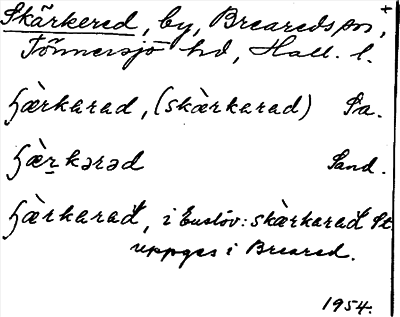 Skärkered, by, Breareds sn, +
Tönnersjö hd, Hall. l.
ʃɑ̀rkarad, (skæ̀rkarad) Sa.
ʃæ̀rkərəd Sand.
ʃæ̀rkarad, i Euslöv: skæ̀rkarad St.
uppges i Breared.
1954.